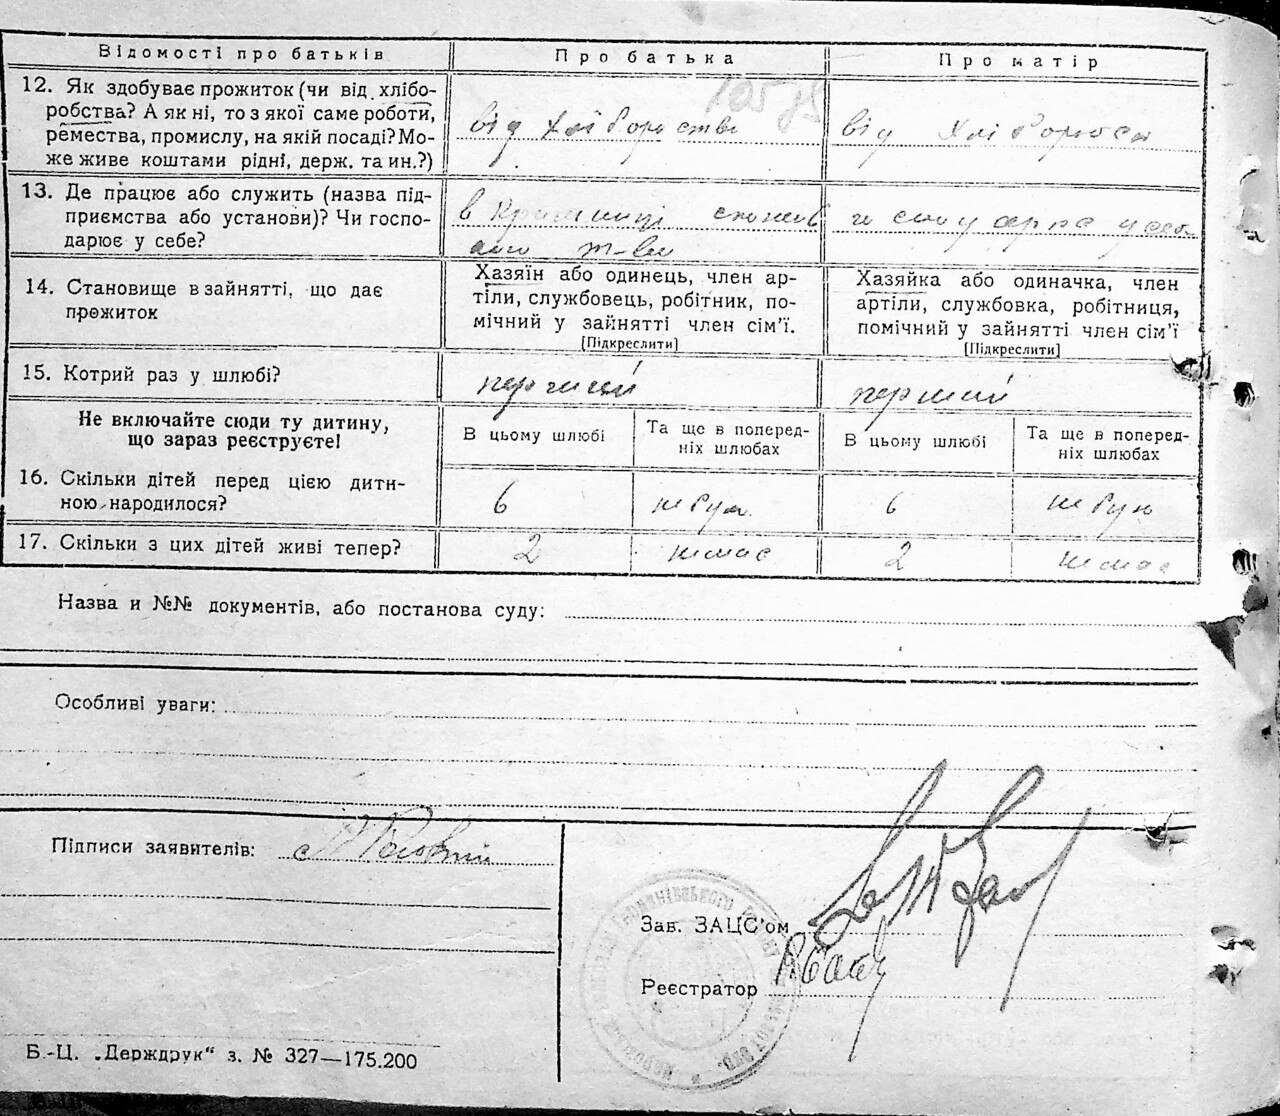 Відомості про батьків Про батька Про матір
12. Як здобуває прожиток (чи від хлібо-
робства? А як ні, то з якої саме роботи,
ремества, промислу, на якій посаді? Мо-
же живе коштами рідні, держ. та ин.?)
від хліборобства
від хліборобства
13. Де працює або служить (назва під-
приємства або установи)? Чи госпо-
дарює у себе?
в
т-ві
14. Становище в зайнятті, що дає
прожиток
Хазяїн або одинець, член ар-
тіли, службовець, робітник, по-
мічний у зайнятті член сім'ї.
[Підкреслити]
Хазяйка або одиначка, член
артіли, службовка, робітниця,
помічний у зайнятті член сім'ї
[Підкреслити]
15. Котрий раз у шлюбі? перший перший
Не включайте сюди ту дитину,
що зараз реєструєте!
В цьому шлюбі
Та ще в поперед-
ніх шлюбах
В цьому шлюбі
Та ще в поперед-
ніх шлюбах
16. Скільки дітей перед цією дити-
ною народилося?
6 не було 6 не було
17. Скільки з цих дітей живі тепер? 2 немає 2 немає
Назва и №№ документів, або постанова суду:
Особливі уваги:
Підписи заявителів:
Зав. ЗАЦС'ом
Реєстратор
Б.-Ц. „Держдрук“ з. № 327—175.200